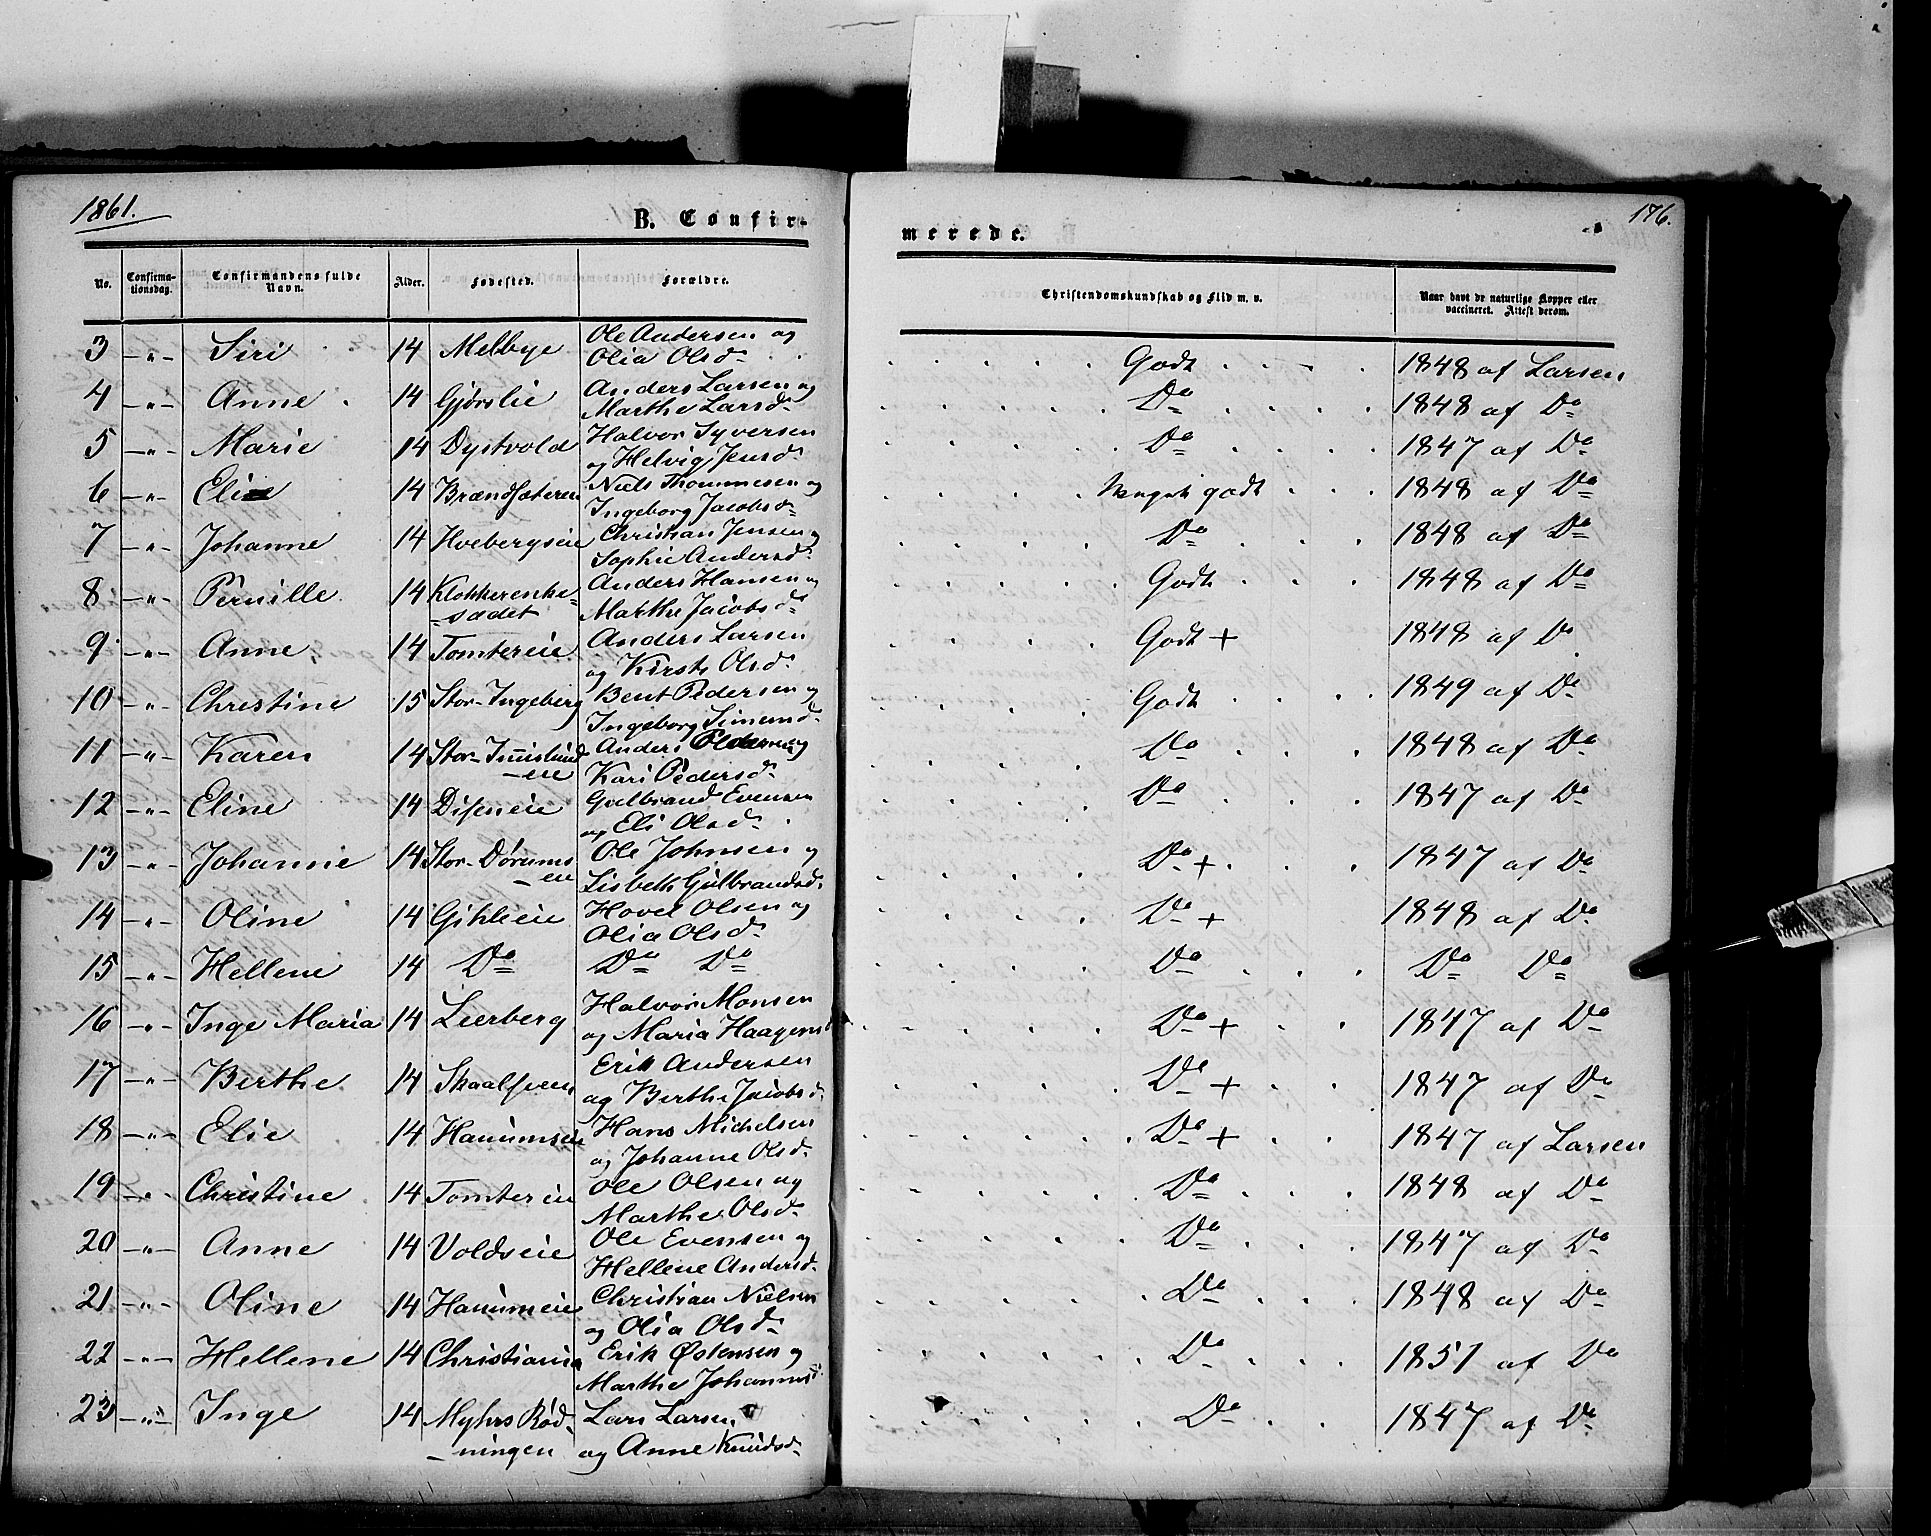 1861.
176.
B. Confir-
merede.
No. | Confirma-tionsdag. | Confirmandens fulde Navn. | Alder. | Fødested. | Forældre. | Christendomskundskab og Flid m. v. | Naar havt de naturlige Kopper eller vaccineret. Attest derom.
3 -"- Siri 14 Melbye Ole Andersen og Olia Olsd. Godt 1848 af Larsen
4 -"- Anne 14 Gjørslie Anders Larsen og Marthe Larsd. Do 1848 af Do
5 -"- Marie 14 Dystvold Halvor Syversen og Helvig Jensd. Do 1847 af Do
6 -"- 14 Brændsæteren Niels Thommesen og Ingeborg Jacobsd. Meget godt 1848 af Do
7 -"- Johanne 14 Hvebergseie Christian Jensen og Sophie Andersd. Do 1848 af Do
8 -"- Pernille 14 Klokkerenke-sædet Anders Hansen og Marthe Jacobsd. Godt 1848 af Do
9 -"- Anne 14 Tomtereie Anders Larsen og Kirsti Olsd. Godt + 1848 af Do
10 -"- Christine 15 Stor-Ingeberg Bent Pedersen og Ingeborg Simensd. Godt 1849 af Do
11 -"- Karen 14 Stor-Imislund-eie Anders Pedersen og Kari Pedersd. Do 1848 af Do
12 -"- Eline 14 Diseneie Gulbrand Evensen og Eli Olsd. Do 1847 af Do
13 -"- Johanne 14 Stor-Dørums-eie Ole Johnsen og Lisbeth Gulbrandsd. Do + 1847 af Do
14 -"- Oline 14 Gihleeie Hovel Olsen og Olia Olsd. Do + 1848 af Do
15 -"- Hellene 14 Do Do Do Do Do Do
16 -"- Inge Maria 14 Lierberg Halvor Monsen og Maria Haagens. Do + 1847 af Do
17 -"- Berthe 14 Skaalseren Erik Andersen og Berthe Jacobsd. Do + 1847 af Do
18 -"- Elie 14 Hanumseie Hans Michelsen og Johanne Olsd. Do + 1847 af Larsen
19 -"- Christine 14 Tomtereie Ole Olsen og Marthe Olsd. Do 1848 af Do
20 -"- Anne 14 Voldseie Ole Evensen og Hellene Andersd. Do 1847 af Do
21 -"- Oline 14 Hanumeie Christian Nielsen og Olia Olsd. Do 1848 af Do
22 -"- Hellene 14 Christiania Erik Østensen og Marthe Johannes. Do 1851 af Do
23 -"- Inge 14 Myhrs Rød-ningen Lars Larsen og Anne Knudsd. Do 1847 af Do